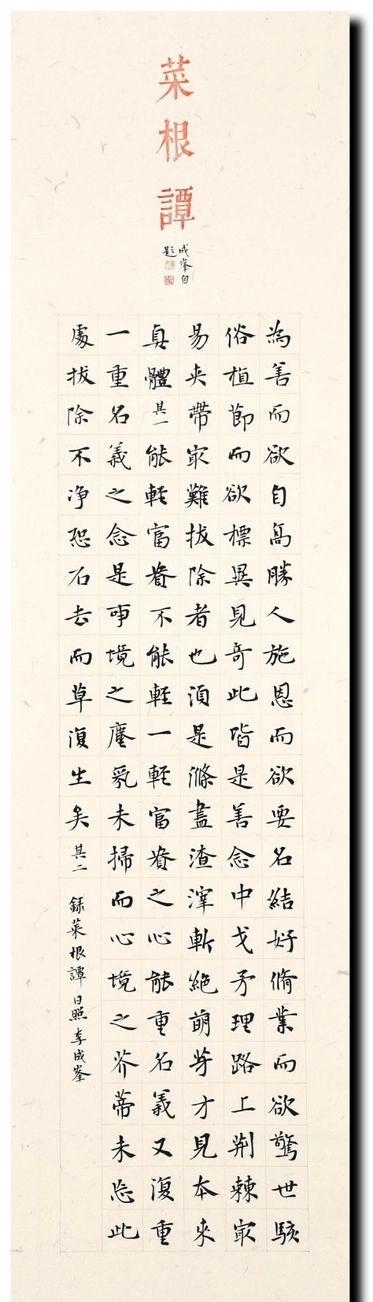 菜根譚
成峯自
題
為善而欲自高勝人施恩而欲要名結好脩業而欲驚世駭
俗植節而欲標異見奇此皆是善念中戈矛理路上荆棘冣
易夾帶冣難拔除者也須是滌盡渣滓斬絕萌芽才見本來
真體其一能輕富貴不能輕一輕富貴之心能重名義又復重
一重名義之念是事境之塵氛未掃而心境之芥蒂未忘此
處拔除不净恐石去而草復生矣其二 録菜根譚日照李成峯